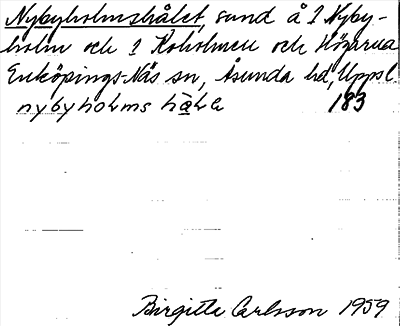 Nybyholmshålet, sund å 1 Nyby-
holm och 1 Koholmen och Högarna
Enköpings-Näs sn, Åsunda hd, Uppsl.
nybyholms hàle 183
Birgitta Carlsson 1959